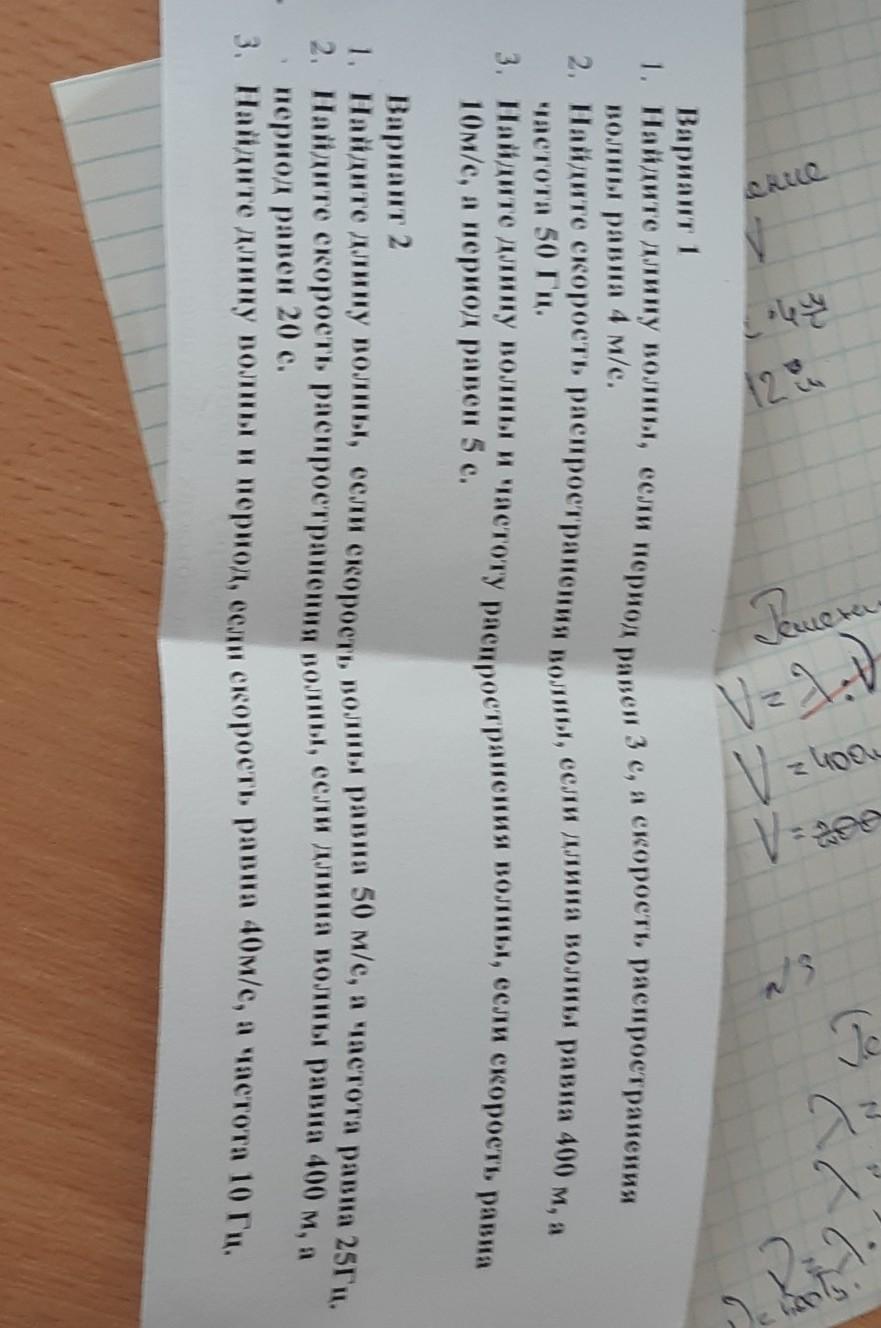 Вариант 1
1. Найдите длину волны, если период равен 3 с, а скорость распространения
волны равна 4 м/с.
2. Найдите скорость распространения волны, если длина волны равна 400 м, а
частота 50 Гц.
3. Найдите длину волны и частоту распространения волны, если скорость равна
10м/с, а период равен 5 с.
Вариант 2
1. Найдите длину волны, если скорость волны равна 50 м/с, а частота равна 25Гц.
2. Найдите скорость распространения волны, если длина волны равна 400 м, а
период равен 20 с.
3. Найдите длину волны и период, если скорость равна 40м/с, а частота 10 Гц.
ение
V
12 м
V = λ
V = 400
V =
λ =
λ =